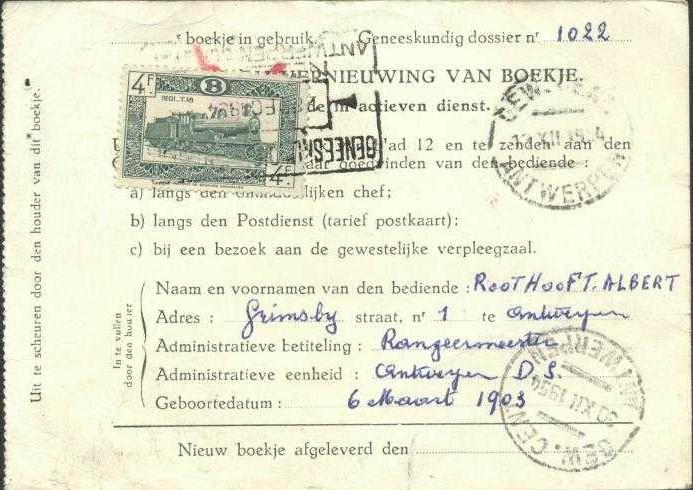 e boekje in gebruik. Geneeskundig dossier nr 1022
VERNIEUWING VAN BOEKJE.
in actieven dienst.
ad 12 en te zenden aan den
goedvinden van den bediende :
a) langs den onmiddellijken chef;
b) langs den Postdienst (tarief postkaart):
c) bij een bezoek aan de gewestelijke verpleegzaal.
Naam en voornamen van den bediende : ROOTHOOFT. ALBERT
Adres : Grimsby straat, nr 1 te Antwerpen
Administratieve betiteling : Rangeermeester
Administratieve eenheid : Antwerpen D.S.
Geboortedatum : 6 Maart 1903
Nieuw boekje afgeleverd den
In te vullen
door den houder
Uit te scheuren door den houder van dit boekje.
4F
B
4F
GENEESK
ANTWERPEN
GEW.
XII 19
ANTWERPEN
ANTWERPEN
XII 1954
GEW. CENT